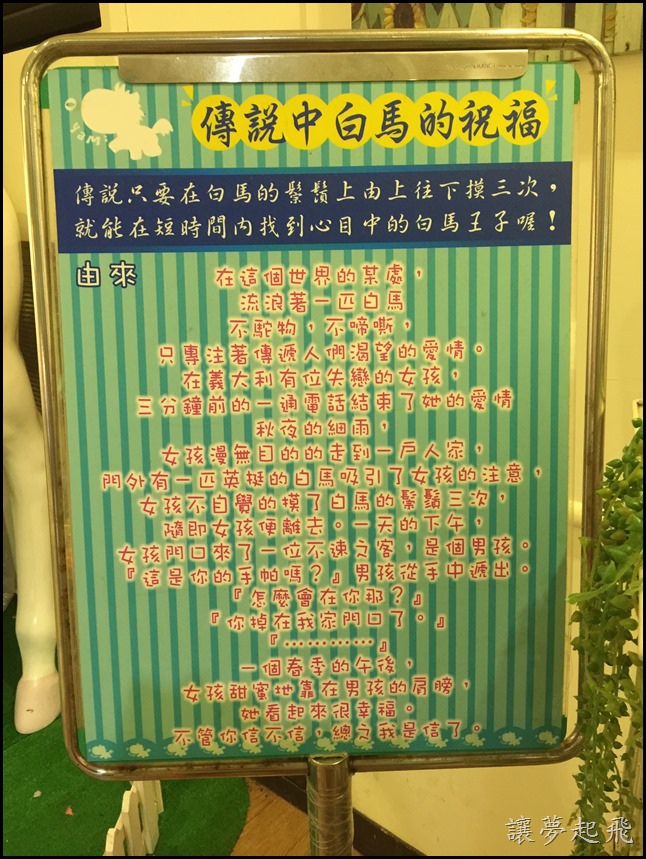 傳說中白馬的祝福
傳說只要在白馬的鬃鬚上由上往下摸三次，
就能在短時間內找到心目中的白馬王子喔！
由來
在這個世界的某處，
流浪著一匹白馬
不駝物，不啼嘶，
只專注著傳遞人們渴望的愛情。
在義大利有位失戀的女孩，
三分鐘前的一通電話結束了她的愛情
秋夜的細雨，
女孩漫無目的的走到一戶人家，
門外有一匹英挺的白馬吸引了女孩的注意，
女孩不自覺的摸了白馬的鬃鬚三次，
隨即女孩便離去。一天的下午，
女孩門口來了一位不速之客，是個男孩。
『這是你的手帕嗎？』男孩從手中遞出。
『怎麼會在你那？』
『你掉在我家門口了。』
『…………』
一個春季的午後，
女孩甜蜜地靠在男孩的肩膀，
她看起來很幸福。
不管你信不信，總之我是信了。
讓夢起飛